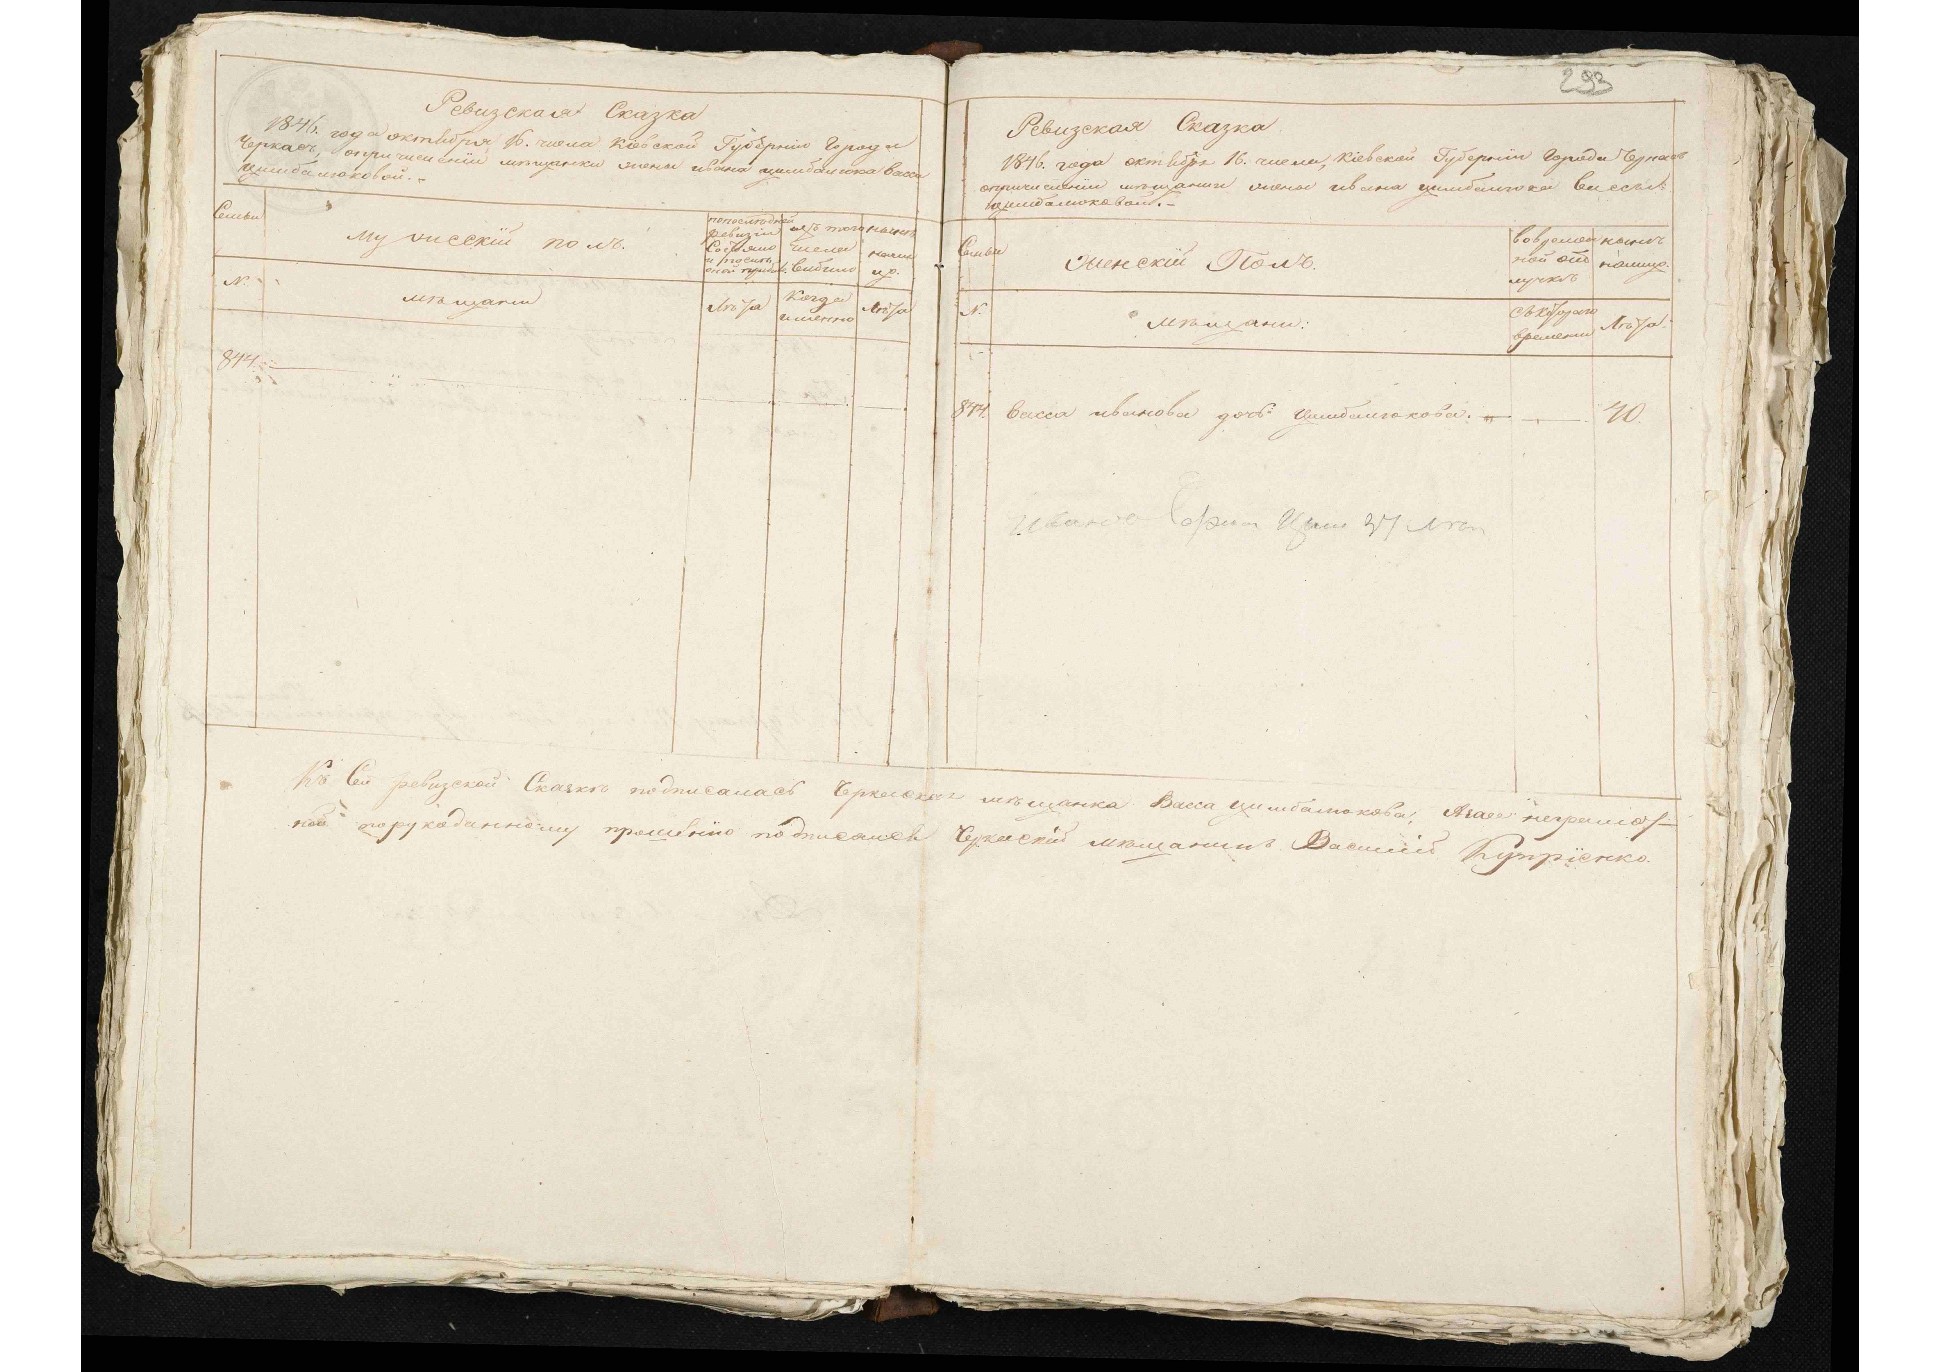 293
Ревизская Сказка
1846. года октября 16. числа Кіевской Губерніи Города
Черкасъ, опричисленіи мѣщанки жены ивана цимбалюка Васса
Цимбалюковой.
Семьи
мужескій полъ.
попоследней
ревизіи
Состояло
изъ того
числа
выбыло
нынѣ
на лицо.
№.
мѣщани
Лѣта
Когда
именно
Лѣта
844.
Ревизская Сказка
1846. года октября 16. числа, Кіевской Губерніи Города Черкасъ
опричисленіи мѣщанки жены ивана цимбалюка Вассы
цимбалюковой.
Семьи
женскій Полъ.
вовремен
ной отъ
лучкѣ
нынѣ
налицо.
№
мѣщани:
съ котораго
времени
Лѣта.
844. Васса иванова дочь Цимбалюкова. 40.
37 Лѣт
Къ Сей ревизской Сказкѣ подписалась Черкаская мѣщанка Васса цимбалюкова, Азаее неграмот-
ной порукоданному прошенію подписался Черкаскій мѣщанинъ Василій Купріенко.